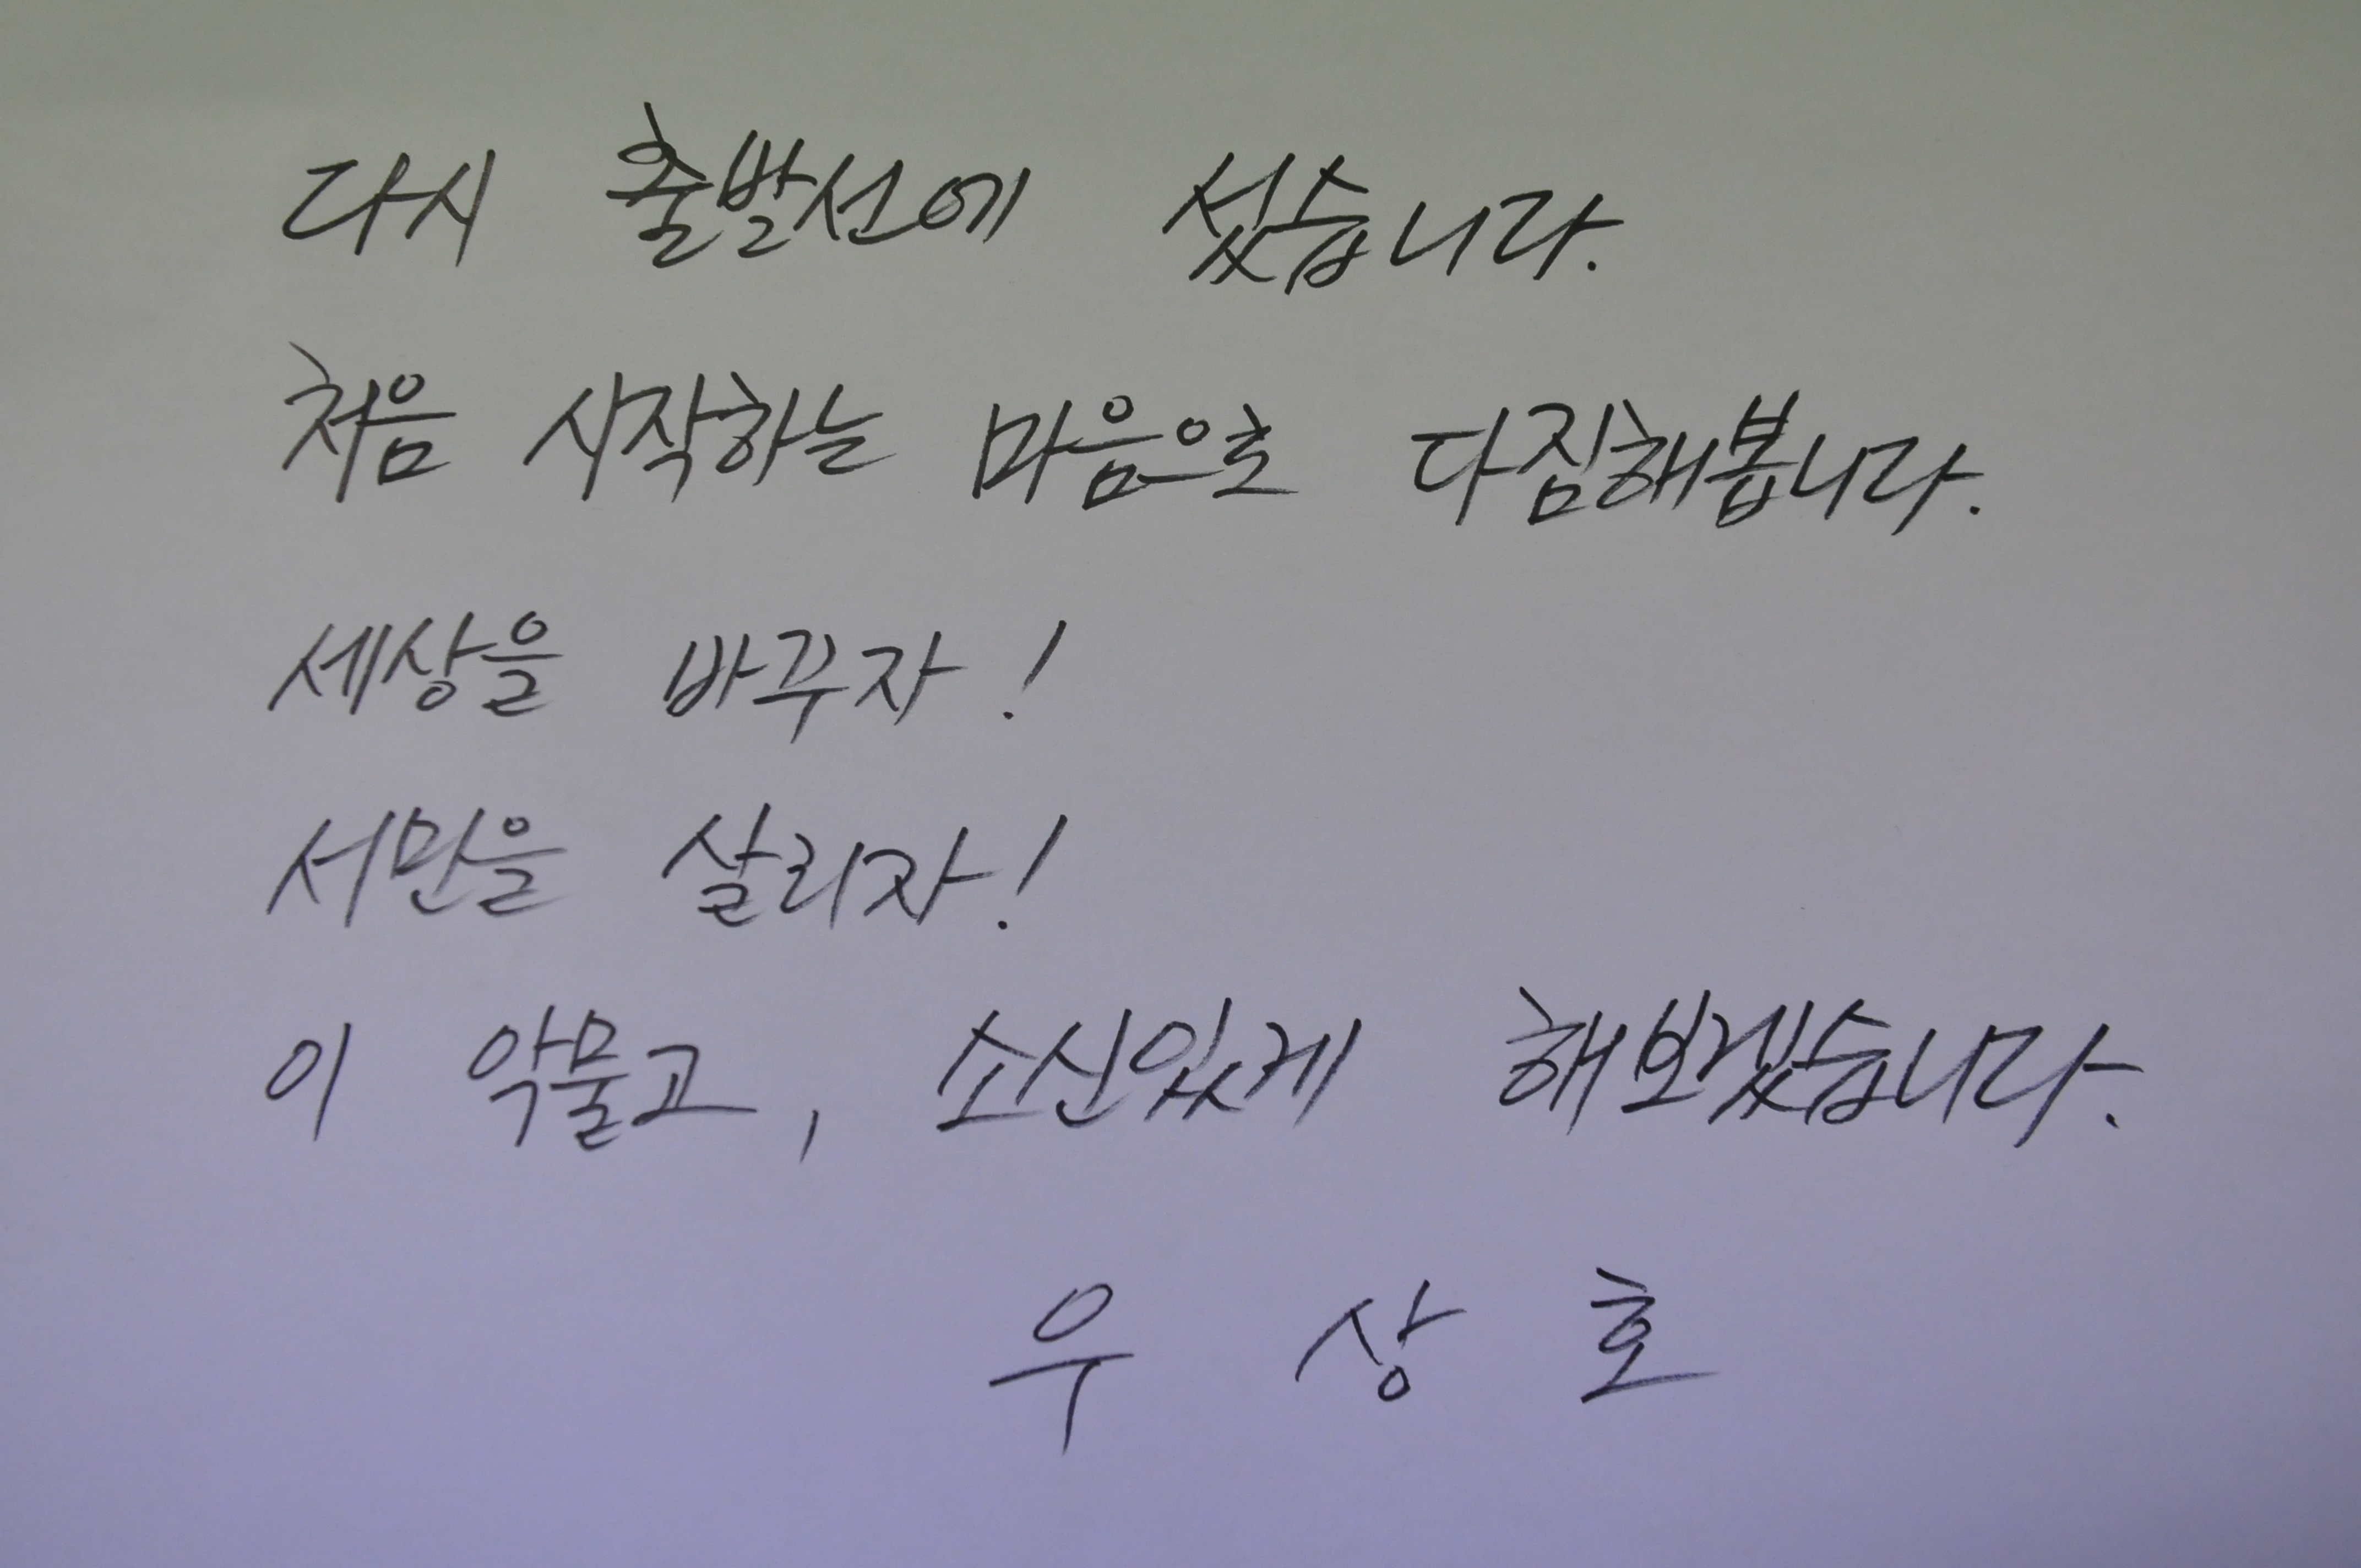 다시 출발선에 섰습니다.
처음 시작하는 마음으로 다짐해봅니다.
세상을 바꾸자!
서민을 살리자!
이 악물고, 소신있게 해보겠습니다.
우 상 호